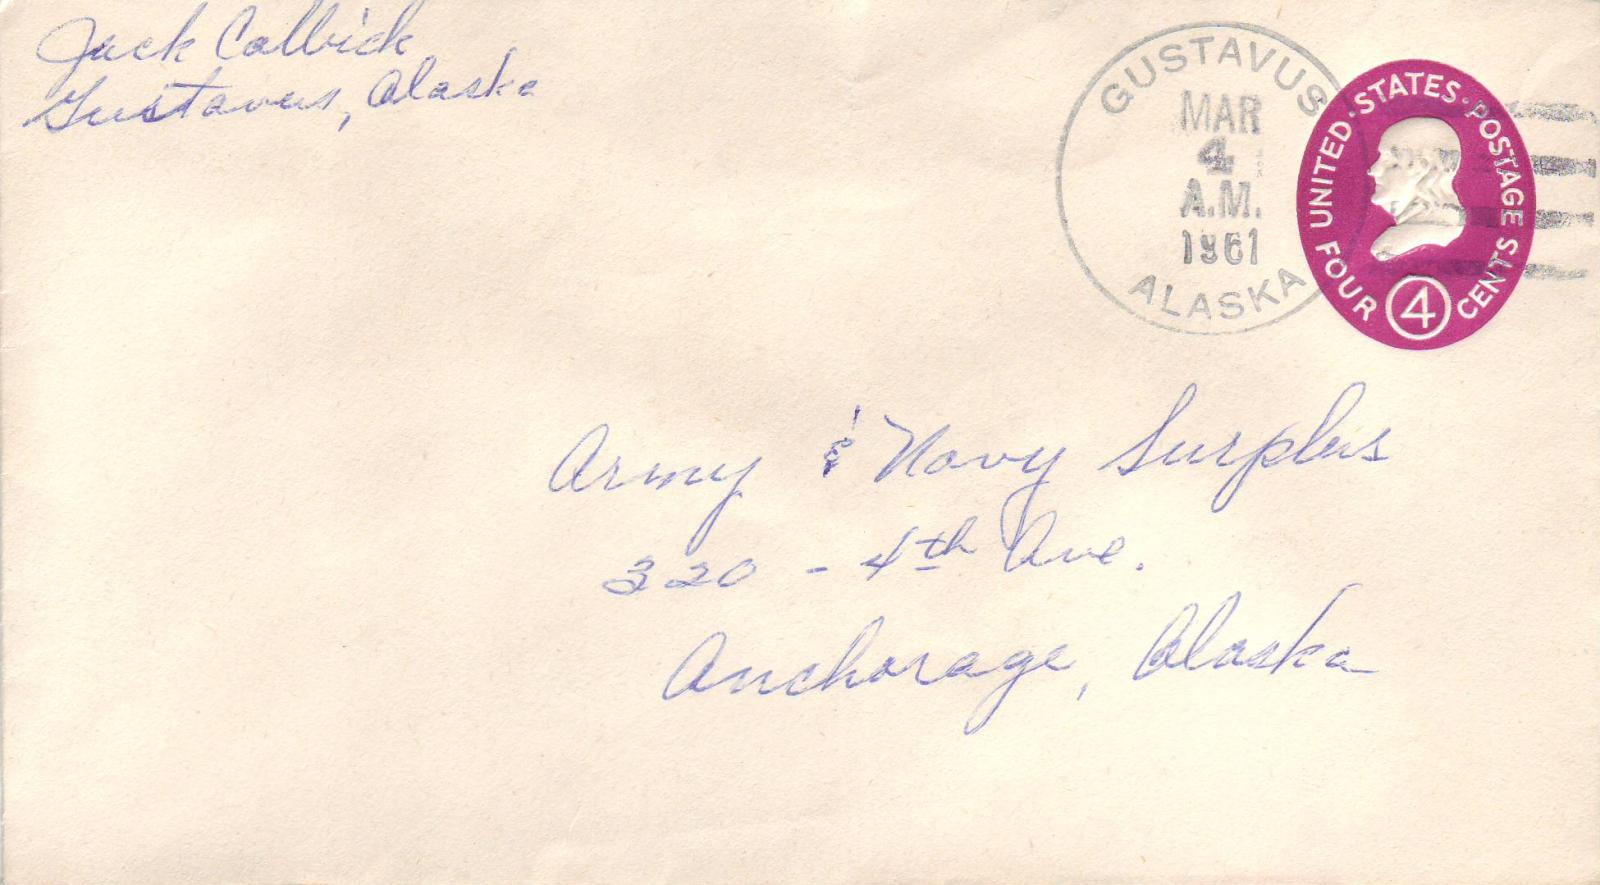 Jack Calbick
Gustavus, Alaska
GUSTAVUS
MAR
4
A.M.
1961
ALASKA
UNITED·STATES·POSTAGE
FOUR 4 CENTS
Army & Navy Surplus
320 - 4th Ave.
Anchorage, Alaska